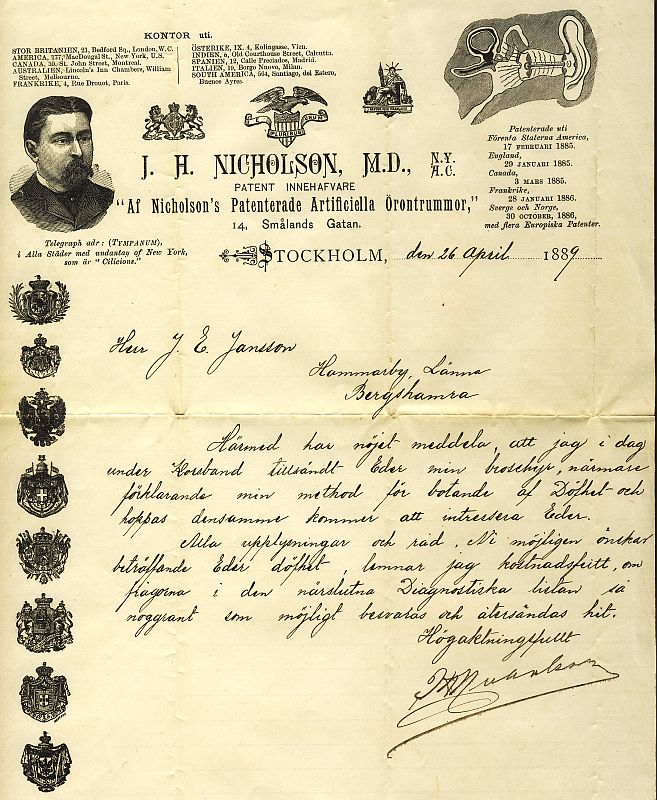 KONTOR uti.
STOR BRITANIEN, 21, Bedford Sq., London, W.C.
AMERICA, 177, MacDougal St., New York, U.S.
CANADA, 30, St. John Street, Montreal.
AUSTRALIEN, Lincoln's Inn Chambers, William
Street, Melbourne.
FRANKRIKE, 4, Rue Drouot, Paris.
ÖSTERIKE, IX, 4, Kolingasse, Vien.
INDIEN, 6, Old Courthouse Street, Calcutta.
SPANIEN, 12, Calle Preciados, Madrid.
ITALIEN, 19, Borgo Nuovo, Milan.
SOUTH AMERICA, 564, Santiago, del Estero,
Buenos Ayres.
J. H. NICHOLSON, M.D., N.Y. A.C.
PATENT INNEHAFVARE
"Af Nicholson's Patenterade Artificiella Örontrummor,"
14, Smålands Gatan.
Patenterade uti
Förenta Staterna America,
17 FEBRUARI 1885.
England,
29 JANUARI 1885.
Canada,
3 MARS 1885.
Frankrike,
28 JANUARI 1886.
Sverge och Norge,
30 OCTOBER, 1886,
med flera Europiska Patenter.
Telegraph adr: (TYMPANUM),
i Alla Städer med undantag of New York,
som är "Cilicious."
STOCKHOLM, den 26 April 1889
Herr J. E. Jansson
Hammarby, Länna
Bergshamra
Härmed har nöjet meddela, att jag i dag
under Korsband tillsändt Eder min broschyr, närmare
förklarande min method för botande af Döfhet och
hoppas densamme kommer att intressera Eder.
Alla upplysningar och råd, Ni möjligen önskar
beträffande Eder döfhet, lemnar jag kostnadsfritt, om
frågorna i den närslutna Diagnostiska listan så
noggrant som möjligt besvaras och återsändas hit.
Högaktningsfullt